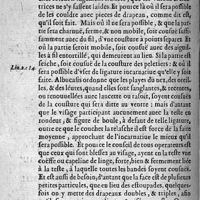 trices ne s'y fassent laides. Et pource là où il sera possible
de les couldre auec pieces de drapeau, comme dit est,
qu'il soit fait. Mais où il n'est possible, & que la par-
tie sera charnuë, ferme, & non mobile, soit cousuë suf-
fisamment auec du fil, d'vne cousture à points espacez. Et
où la partie seroit mobile, soit cousuë auec des aiguil-
lés à fil entortillé, qui demeurent au lieu. Si la partie est
seiche, soit cousuë de la cousture des pelletiers: & où il
sera possible d'vser de ligature incarnatiue qu'elle y
soit faite. Albucasis ordonne que les playes du nez, des oreil-
les, & des léures, quand elles sont sanglantes, & recentes,
ou renouuellées auec lancette ou rasoir, soyent cousuës
de la cousture qui sera ditte au ventre: mais d'autant
que le visage participant aucunement auec la teste en
rondeur, & figure de boule, a defaut de telle ligature,
outre ce que le coucher la relasche: il est force de la faite
moyenne, approchant de l'incarnatiue le mieux qu'il
sera possible. Et pource le conseil de tous operateurs est
que ceux qui sont blessez au visage, ayent en la teste vne
coëffe ou capeline de linge, forte, bien & fermement liée
à la teste, à laquelle toutes les bandes soyent cousuës.
Et est aussi de besoin, d'autant que la face est de plusieurs
petites particules, que en lieu des estoupades, quelques-
on y mette des drapeaux doubles, & triples,
Liu. 2. c. 14